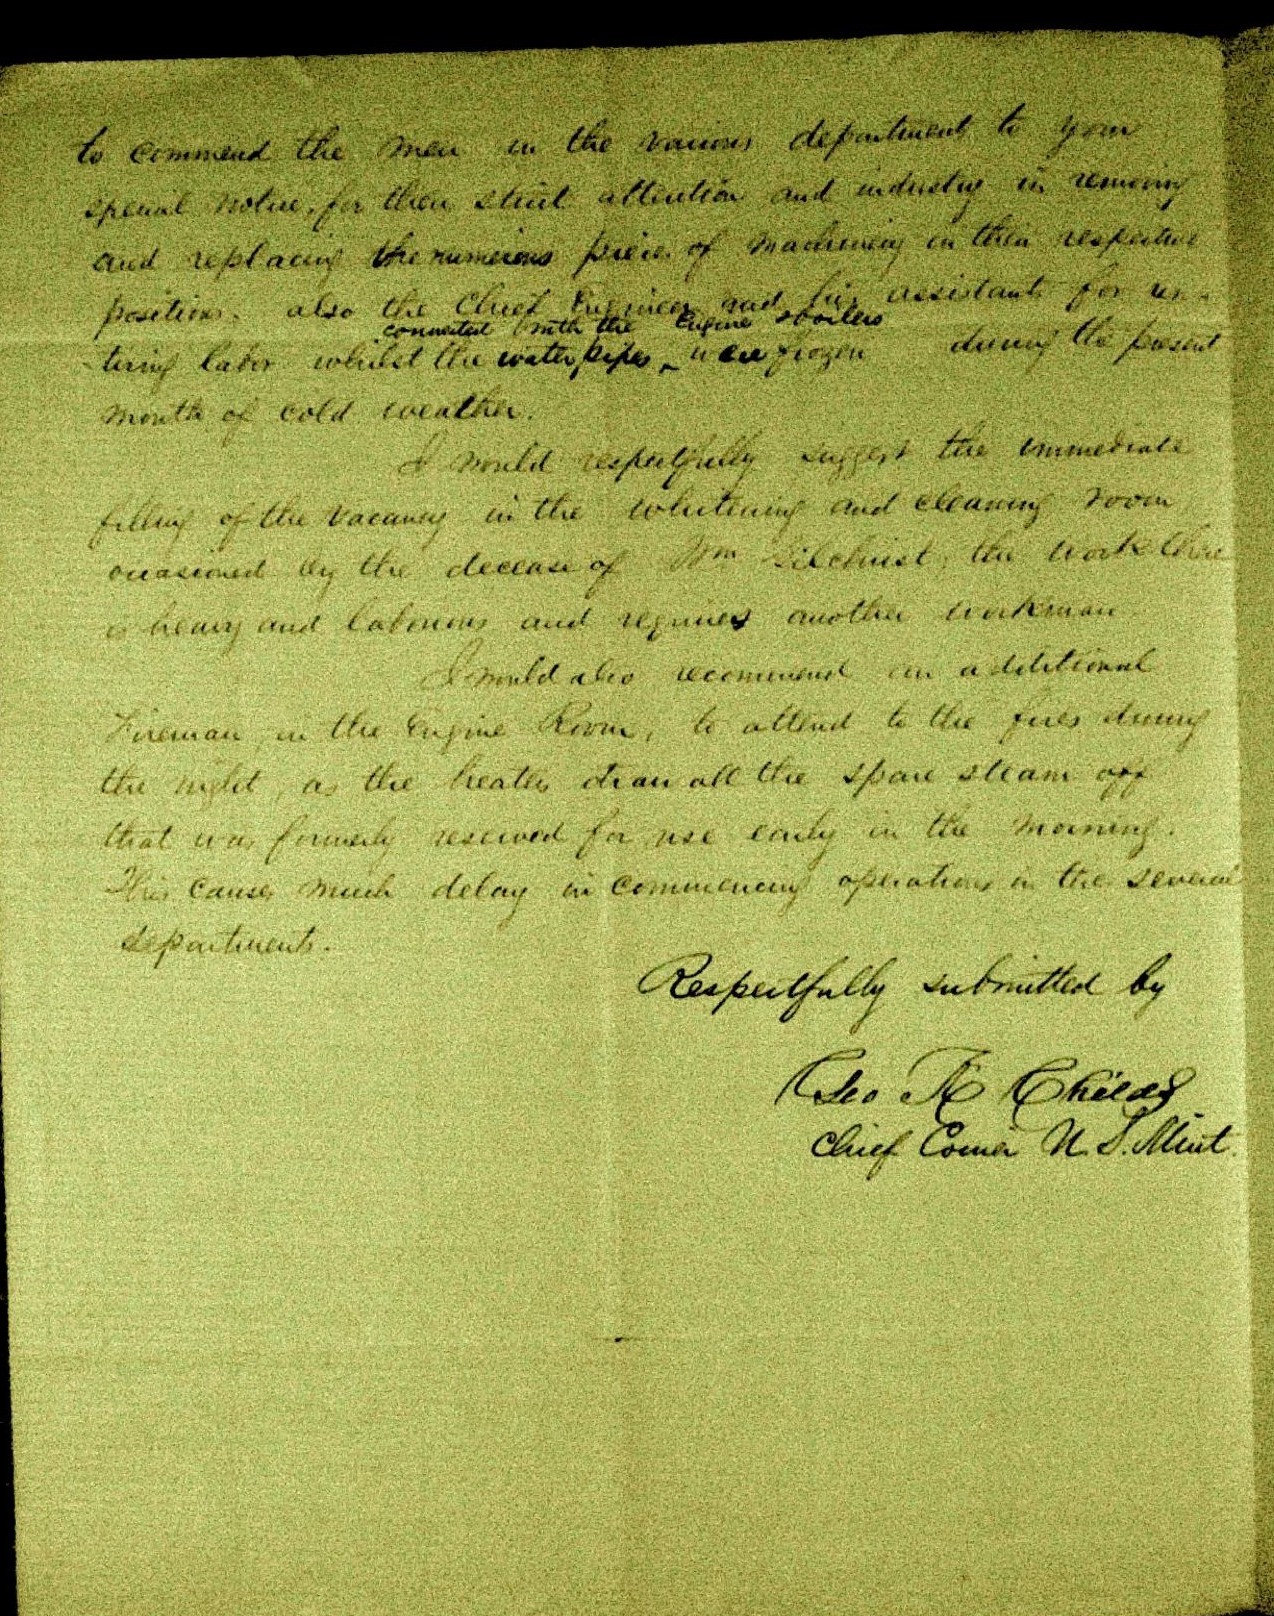 to commend the men in the various department to your
special notice, for their strict attention and industry in removing
and replacing the numerous pieces of machinery in their respective
positions. also the Chief Engineer and his assistants for un-
connected with the Engine & boilers
tiring labor whilst the water pipes ‸ were frozen during the present
month of cold weather.
I would respectfully suggest the immediate
filling of the vacancy in the whitening and cleaning room
occasioned by the decease of Wm Gilchrist, the work there
is heavy and laborious and requires another workman
I would also recommend an additional
Fireman, in the Engine Room, to attend to the fires during
the night, as the heaters draw all the spare steam off
that was formerly reserved for use early in the morning.
This causes much delay in commencing operations in the several
departments.
Respectfully submitted by
Geo K Childs
Chief Coiner U.S. Mint.